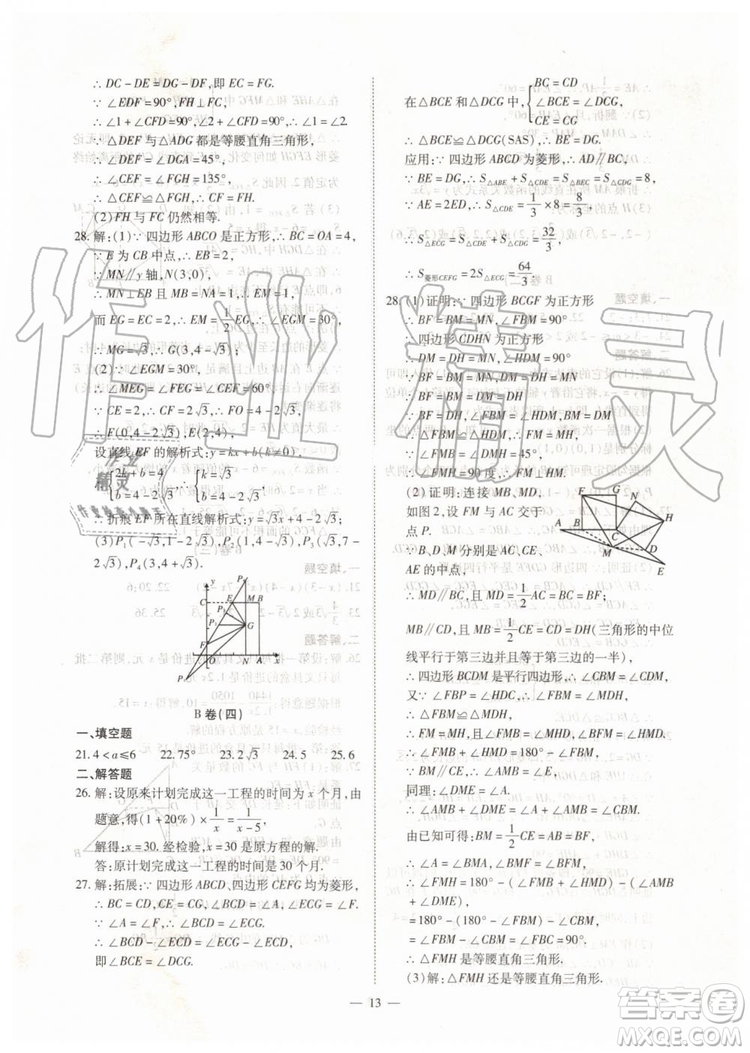 ∴ DC－DE＝DG－DF,即∴ EC＝FG.
∵ ∠EDF＝90°,FH⊥FC,
∴ ∠1＋∠CFD＝90°,∠2＋∠CFD＝90°,∴ ∠1＝∠2.
又∵ △DEF 与△ADG 都是等腰直角三角形,
∴ ∠DEF＝∠DGA＝45°,
∴ ∠CEF＝∠FGH＝135°,
∴ △CEF≌△FGH,∴ CF＝FH.
(2)FH 与 FC 仍然相等.
28.解:(1)∵ 四边形 ABCO 是正方形,∴ BC＝OA＝4,
∵ E 为 CB 中点,∴ EB＝2,
∵ MN∥y 轴,∴ MN⊥BC,
∴ 四边形 MNAB 是矩形,∴ MB＝NA＝1,∴ EM＝1,
而 EG＝EC＝2,∴ EM＝1/2 EG,∴ ∠EGM＝30°,
∴ MG＝√3,∴ G(3,4－√3).
(2)∵ ∠EGM＝30°,
∴ ∠MEG＝∠FEG＝∠CEF＝60°,
∵ CE＝2,∴ CF＝2√3,∴ FO＝4－2√3,
∴ F(0,4－2√3),E(2,4),
设直线 EF 的解析式:y＝kx＋b(k≠0).
∴ {2k＋b＝4 b＝4－2√3,∴ {k＝√3 b＝4－2√3,
∴ 折痕 EF 所在直线解析式:y＝√3x＋4－2√3,
(3)P₁(－√3,1－2√3),P₂(1,4－√3),P₃(√3,7－
2√3),P₄(3,4＋√3).
y
C E M B
P₃
P₂
G
F
N A x
P₁
B卷(四)
一、填空题
21.4＜a≤6 22.75° 23.2√3 24.5 25.6
二、解答题
26.解:设原来计划完成这一工程的时间为 x 个月,由
题意,得(1＋20%)×1/x＝1/(x－5),
解得:x＝30.经检验,x＝30是原方程的解.
答:原计划完成这一工程的时间是30个月.
27.解:拓展:∵ 四边形 ABCD、四边形 CEFG 均为菱形,
∴ BC＝CD,CE＝CG,∠BCD＝∠A,∠ECG＝∠F.
∵ ∠A＝∠F,∴ ∠BCD＝∠ECG.
∴ ∠BCD－∠ECD＝∠ECG－∠ECD,
即∠BCE＝∠DCG.
在△BCE 和△DCG 中,{BC＝CD ∠BCE＝∠DCG CE＝CG
∴ △BCE≌△DCG(SAS),∴ BE＝DG.
应用:∵ 四边形 ABCD 为菱形,∴ AD∥BC,
∵ BE＝DG,∴ S△ABE＋S△CDE＝S△BEC＝S△CDG＝8,
∵ AE＝2ED,∴ S△CDE＝1/3×8＝8/3,
∴ S△ECG＝S△CDE＋S△CDG＝32/3,
∴ S菱形CEFG＝2S△ECG＝64/3.
28.(1)证明:∵ 四边形 BCGF 为正方形
∴ BF＝BM＝MN,∠FBM＝90°,
∵ 四边形 CDHN 为正方形
∴ DM＝DH＝MN,∠HDM＝90°,
∵ BF＝BM＝MN,DM＝DH＝MN,
∴ BF＝BM＝DM＝DH,
∵ BF＝DH,∠FBM＝∠HDM,BM＝DM,
∴ △FBM≌△HDM,∴ FM＝MH,
∵ ∠FMB＝∠DMH＝45°,
∴ ∠FMH＝90度,∴ FM⊥HM.
(2)证明:连接 MB、MD,
如图2,设 FM 与 AC 交于
点 P.
G N
F H
A B P C D
M
E
∵ B、D、M 分别是 AC、CE、
AE 的中点,
∴ MD∥BC,且 MD＝1/2 AC＝BC＝BF;
MB∥CD,且 MB＝1/2 CE＝CD＝DH(三角形的中位
线平行于第三边并且等于第三边的一半),
∴ 四边形 BCDM 是平行四边形,∴ ∠CBM＝∠CDM,
又∵ ∠FBP＝∠HDC,∴ ∠FBM＝∠MDH,
∴ △FBM≌△MDH,∴ FM＝MH,
且∠FMB＝∠MHD,∠BFM＝∠HMD.
∴ ∠FMB＋∠HMD＝180°－∠FBM,
∵ BM∥CE,∴ ∠AMB＝∠E,
同理:∠DME＝∠A.
∴ ∠AMB＋∠DME＝∠A＋∠AMB＝∠CBM.
由已知可得:BM＝1/2 CE＝AB＝BF,
∴ ∠A＝∠BMA,∠BMF＝∠BFM,
∴ ∠FMH＝180°－(∠FMB＋∠HMD)－(∠AMB
＋∠DME),
＝180°－(180°－∠FBM)－∠CBM
＝∠FBM－∠CBM＝∠FBC＝90°.
∴ △FMH 是等腰直角三角形.
(3)解:△FMH 还是等腰直角三角形.
— 13 —
作业精灵
作业精灵
答案圈
MXQE.COM